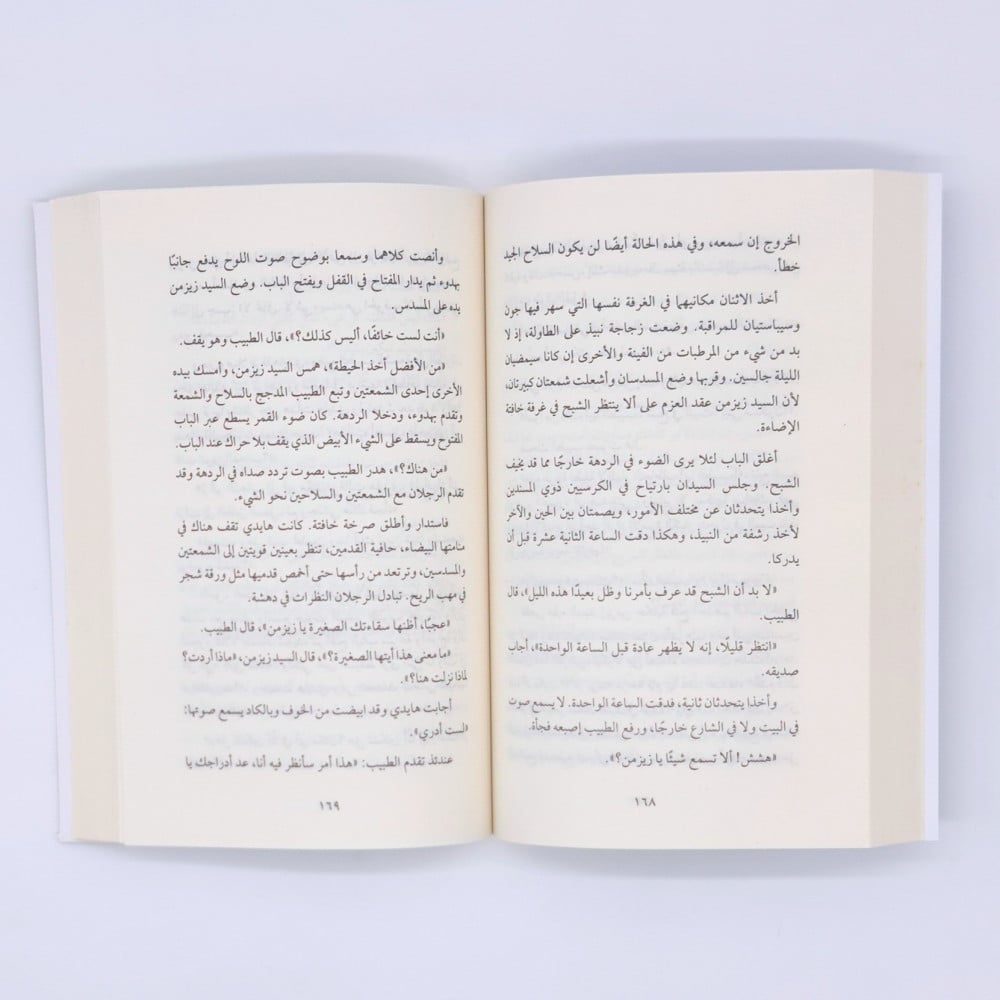 الخروج إن سمعه، وفي هذه الحالة أيضًا لن يكون السلاح الجيد
خطأ.
أخذ الاثنان مكانيهما في الغرفة نفسها التي سهر فيها جون
وسيباستيان للمراقبة. وضعت زجاجة نبيذ على الطاولة، إذ لا
بد من شيء من المرطبات من الفينة والأخرى إن كانا سيمضيان
الليلة جالسين. وقربها وضع المسدسان وأشعلت شمعتان كبيرتان،
لأن السيد زيزمن عقد العزم على ألا ينتظر الشبح في غرفة خافتة
الإضاءة.
أغلق الباب لئلا يرى الضوء في الردهة خارجًا مما قد يخيف
الشبح. وجلس السيدان بارتياح في الكرسيين ذوي المسندين
وأخذا يتحدثان عن مختلف الأمور، ويصمتان بين الحين والآخر
لأخذ رشفة من النبيذ، وهكذا دقت الساعة الثانية عشرة قبل أن
يدركا.
«لا بد أن الشبح قد عرف بأمرنا وظل بعيدًا هذه الليل»، قال
الطبيب.
«انتظر قليلًا، إنه لا يظهر عادة قبل الساعة الواحدة»، أجاب
صديقه.
وأخذا يتحدثان ثانية، فدقت الساعة الواحدة. لا يسمع صوت
في البيت ولا في الشارع خارجًا، ورفع الطبيب إصبعه فجأة.
«هشش! ألا تسمع شيئًا يا زيزمن؟».
١٦٨
وأنصت كلاهما وسمعا بوضوح صوت اللوح يدفع جانبًا
بهدوء ثم يدار المفتاح في القفل ويفتح الباب. وضع السيد زيزمن
يده على المسدس.
«أنت لست خائفًا، أليس كذلك؟»، قال الطبيب وهو يقف.
«من الأفضل أخذ الحيطة»، همس السيد زيزمن، وأمسك بيده
الأخرى إحدى الشمعتين وتبع الطبيب المدجج بالسلاح والشمعة
وتقدم بهدوء، ودخلا الردهة. كان ضوء القمر يسطع عبر الباب
المفتوح ويسقط على الشيء الأبيض الذي يقف بلا حراك عند الباب.
«من هناك؟»، هدر الطبيب بصوت تردد صداه في الردهة وقد
تقدم الرجلان مع الشمعتين والسلاحين نحو الشيء.
فاستدار وأطلق صرخة خافتة. كانت هايدي تقف هناك في
منامتها البيضاء، حافية القدمين، تنظر بعينين قويتين إلى الشمعتين
والمسدسين، وترتعد من رأسها حتى أخمص قدميها مثل ورقة شجر
في مهب الريح. تبادل الرجلان النظرات في دهشة.
«عجبًا، أظنها سقاءتك الصغيرة يا زيزمن»، قال الطبيب.
«ما معنى هذا أيتها الصغيرة؟»، قال السيد زيزمن، «ماذا أردت؟
لماذا نزلت هنا؟».
أجابت هايدي وقد ابيضت من الخوف وبالكاد يسمع صوتها:
«لست أدري».
عندئذ تقدم الطبيب: «هذا أمر سأنظر فيه أنا، عد أدراجك يا
١٦٩